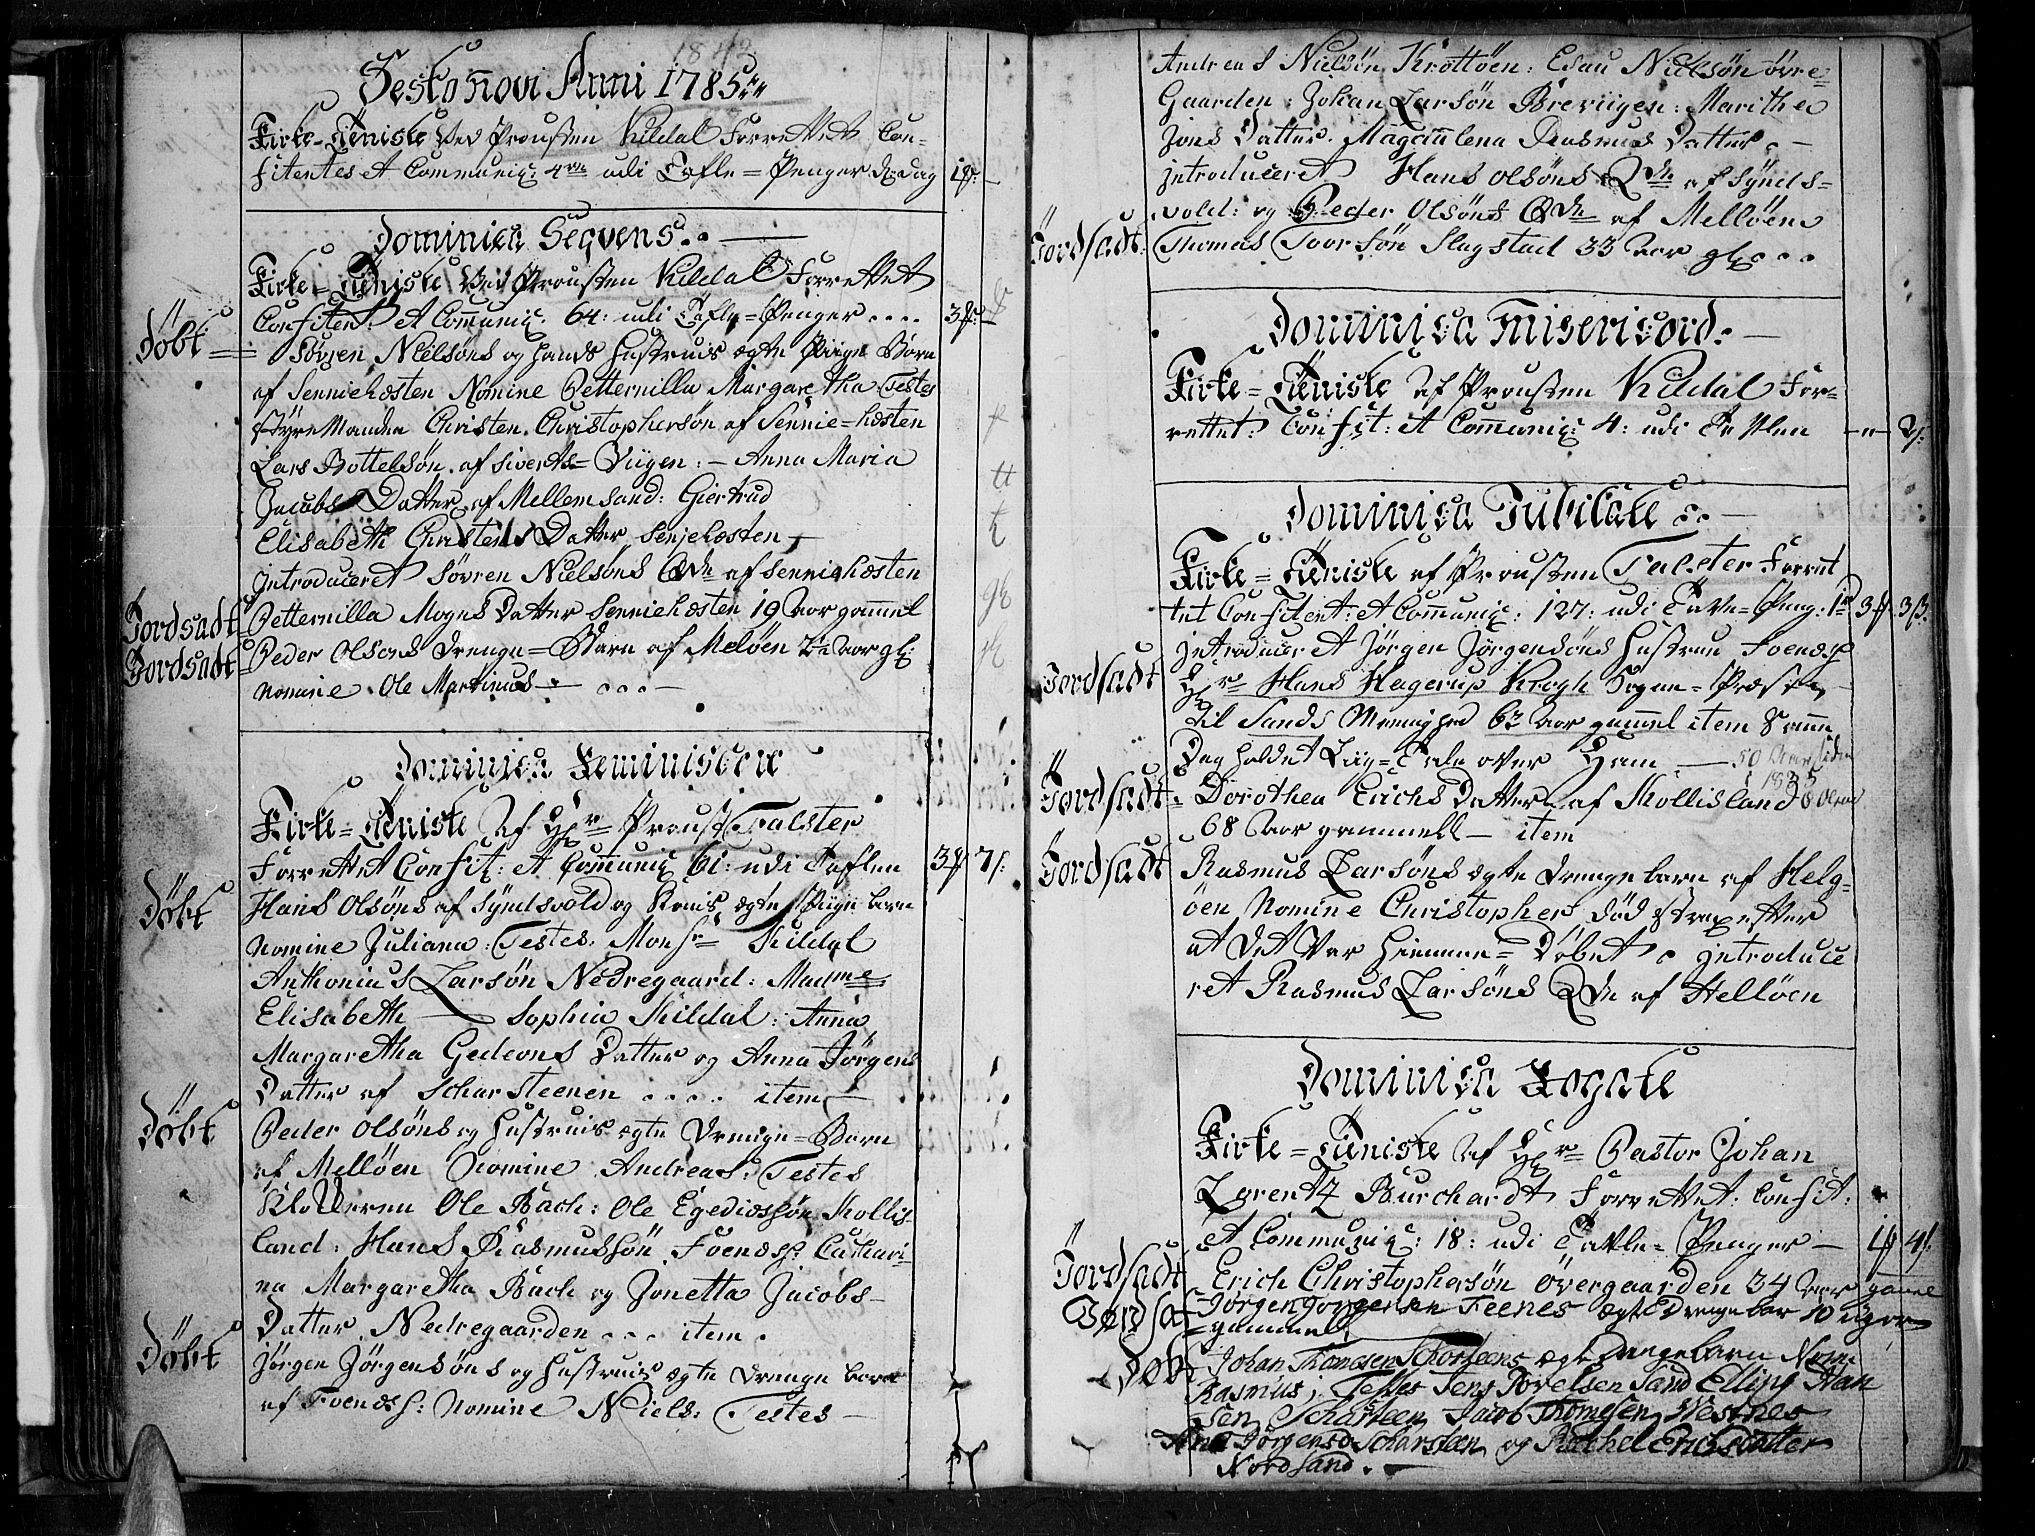 1842
Festo Novi Anni 1785
Kirke-Tieniste Ved Prousten Kildal Forrettet Con-
fitentes Et Communiq: 4re udi Tafle=Penger d: Dag
Dominica Seqvens
Kirke=Tieniste Ved Prousten Kildal Forrettet
Confitent: Et Communiq: 64: udi Tafle=Penger
Döbt
Söyren Nielsöns og Hands Hustruis ægte Piige Barn
af Senniehæsten Nomine Petternilla Margaretha Testes
Styrmanden Christen Christophersön af Sennie=hæsten
Lars Bottelsön af Siverts=Viigen: Anna Maria
Jacobs Datter af Mellemsand: Giertrud
Elisabeth Christens Datter Senjehæsten
Introduceret Sövren Nielsöns Qde af Senniehæsten
Jordsadt
Petternilla Mogns Datter Senniehæsten 19 Aar gammel
Jordsadt
Peder Olsöns Drenge=Barn af Melöen 2½ Aar gl:
Nomine Ole Martinus
Dominica Reminiscere
Kirke=Tieniste Af Hr Proust Falster
Forrettet Confit: et Communiq 61: udi Taflen
Döbt
Hans Olsöns af Syndsvold og Konis ægte Piige barn
Nomine Juliana: Testes: Monsr Kildal
Anthonius Larsön Nedregaard: Madme
Elisabeth Sophia Kildal: Anna
Margaretha Gedeons Datter og Anna Jörgens
Datter af Scharsteenen item
Döbt
Peder Olsöns og Hustruis ægte Drenge=Barn
af Mellöen Nomine Andreas: Testes
Klokkeren Ole Bach: Ole Egediussön Kollis-
land: Hans Rasmussön Foendss: Cathari-
na Margaretha Bach og Jonetta Jacobs-
Datter Nedregaarden item
Döbt
Jörgen Jörgensöns og Hustruis ægte Drenge barn
af Foendss: Nomine Niels: Testes
Andreas Nielsön Krottöen: Esau Nielsön övre-
Gaarden: Johan Larsön Breviigen: Marithe
Jons Datter: Magdalena Rasmus Datter
introduceret Hans Olsöns Qde af Synds=
vold: og Peder Olsöns Qde af Mellöen
Jordsadt:
Thomas Toorsön Slagstad 33 Aar gl:
Dominica Misericord:
Kirke=Tieniste Af Prousten Kildal For-
rettet: Confit: et Communiq: 4: udi Tavlen
Dominica Jubilate
Kirke=Tieniste af Prousten Falster Forret
tet Confitent: et Communiq: 127: udi Tavle=Peng:
introduceret Jörgen Jörgensöns Hustrue Foendss
Jordsadt
Hr Hans Hagerup Krogh Sogne=Præst
til Sands Menighed 62 Aar gammel item Samme
Dag holdet Liig=Tale over Ham 50 Aar siden
1835
Jordsadt:
Dorothea Erichs Datter af Kollisland
68 Aar gammell item
Jordsadt
Rasmus Larsöns ægte Drenge barn af Helg-
öen Nomine Christopher död strax efter
at det Var Hiemme=Döbet introduce
ret Rasmus Larsöns Qde af Hellöen
Dominica Rogate
Kirke=Tieniste Af Hr Pastor Johan
Lorentz Burchardt Forrettet: Confit:
et Communiq: 18: udi Tavle=Penger
Jordsadt
Erich Christophersön Övergaarden 34 Aar gamel
Jordsat
Jörgen Jorgensen Feenes ægte Drengebar 10 uger
gammel
Döbt
Johan Thomesen Schorsteens ægte Drengebarn Nom:
Rasmus; Testes Jens Povelsen Sand Elling Han
sen Scharsteen Jacob Thomesen Westnes
Ane Jörgensd Scharsteen og Rachel Erichsdatter
Nordsand.